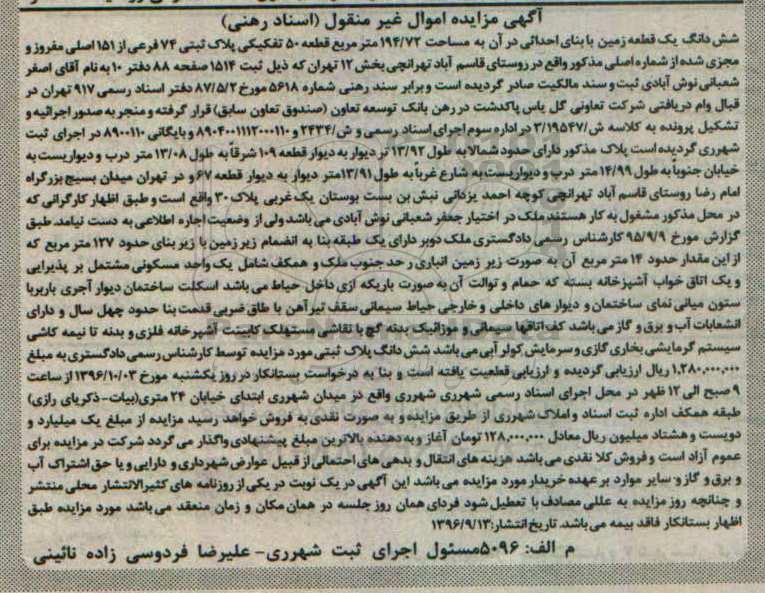 آگهی مزایده اموال غیر منقول (اسناد رهنی)
شش دانگ یک قطعه زمین با بنای احداثی در آن به مساحت ۱۹۴/۷۲ متر مربع قطعه ۵۰ تفکیکی پلاک ثبتی ۷۴ فرعی از ۱۵۱ اصلی مفروز و
مجزی شده از شماره اصلی مذکور واقع در روستای قاسم آباد تهرانچی بخش ۱۲ تهران که ذیل ثبت ۱۵۱۴ صفحه ۸۸ دفتر ۱۰ به نام آقای اصغر
شعبانی نوش آبادی ثبت و سند مالکیت صادر گردیده است و برابر سند رهنی شماره ۵۶۱۸ مورخ ۸۷/۵/۲ دفتر اسناد رسمی ۹۱۷ تهران در
قبال وام دریافتی شرکت تعاونی گل یاس پاکدشت در رهن بانک توسعه تعاون (صندوق تعاون سابق) قرار گرفته و منجر به صدور اجرائیه و
تشکیل پرونده به کلاسه ش/۳/۱۹۵۴۷ در اداره سوم اجرای اسناد رسمی و ش/۲۴۳۴ و ۸۹۰۴۰۰۱۱۱۲۰۰۰۱۱۰ و بایگانی ۸۹۰۰۱۱۰ در اجرای ثبت
شهرری گردیده است پلاک مذکور دارای حدود شمالا به طول ۱۳/۹۲ تر دیوار به دیوار قطعه ۱۰۹ شرقاً به طول ۱۳/۰۸ متر درب و دیواریست به
خیابان جنوباً به طول ۱۴/۹۹ متر درب و دیواریست به شارع غرباً به طول ۱۳/۹۱ متر دیوار به دیوار قطعه ۶۷ و در تهران میدان بسیج بزرگراه
امام رضا روستای قاسم آباد تهرانچی کوچه احمد یزدانی نبش بن بست بوستان یک غربی پلاک ۳۰ واقع است و طبق اظهار کارگرانی که
در محل مذکور مشغول به کار هستند ملک در اختیار جعفر شعبانی نوش آبادی می باشد ولی از وضعیت اجاره اطلاعی به دست نیامد. طبق
گزارش مورخ ۹۵/۹/۹ کارشناس رسمی دادگستری ملک دوبر دارای یک طبقه بنا به انضمام زیر زمین با زیر بنای حدود ۱۲۷ متر مربع که
از این مقدار حدود ۱۴ متر مربع آن به صورت زیر زمین انباری رحد جنوب ملک و همکف شامل یک واحد مسکونی مشتمل بر پذیرایی
و یک اتاق خواب آشپزخانه بسته که حمام و توالت آن به صورت باریکه ازی داخل حیاط می باشد اسکلت ساختمان دیوار آجری باربر با
ستون میانی نمای ساختمان و دیوار های داخلی و خارجی حیاط سیمانی سقف تیر آهن با طاق ضربی قدمت بنا حدود چهل سال و دارای
انشعابات آب و برق و گاز می باشد کف اتاقها سیمانی و موزائیک بدنه گچ با نقاشی مستهلک کابینت آشپرخانه فلزی و بدنه تا نیمه کاشی
سیستم گرمایشی بخاری گازی و سرمایش کولر آبی می باشد شش دانگ پلاک ثبتی مورد مزایده توسط کارشناس رسمی دادگستری به مبلغ
۱,۲۸۰,۰۰۰,۰۰۰ ریال ارزیابی گردیده و ارزیابی قطعیت یافته است و بنا به درخواست بستانکار در روز یکشنبه مورخ ۱۳۹۶/۱۰/۰۳ از ساعت
۹ صبح الی ۱۲ ظهر در محل اجرای اسناد رسمی شهرری شهرری واقع در میدان شهرری ابتدای خیابان ۲۴ متری(بیات-ذکریای رازی)
طبقه همکف اداره ثبت اسناد و املاک شهرری از طریق مزایده و به صورت نقدی به فروش خواهد رسید مزایده از مبلغ یک میلیارد و
دویست و هشتاد میلیون ریال معادل ۱۲۸,۰۰۰,۰۰۰ تومان آغاز و به دهنده بالاترین مبلغ پیشنهادی واگذار می گردد شرکت در مزایده برای
عموم آزاد است و فروش کلا نقدی می باشد هزینه های انتقال و بدهی های احتمالی از قبیل عوارض شهرداری و دارایی و یا حق اشتراک آب
و برق و گاز و سایر موارد بر عهده خریدار مورد مزایده می باشد این آگهی در یک نوبت در یکی از روزنامه های کثیرالانتشار محلی منتشر
و چنانچه روز مزایده به عللی مصادف با تعطیل شود فردای همان روز جلسه در همان مکان و زمان منعقد می باشد مورد مزایده طبق
اظهار بستانکار فاقد بیمه می باشد. تاریخ انتشار: ۱۳۹۶/۹/۱۳
م الف: ۵۰۹۶ مسئول اجرای ثبت شهرری- علیرضا فردوسی زاده نائینی